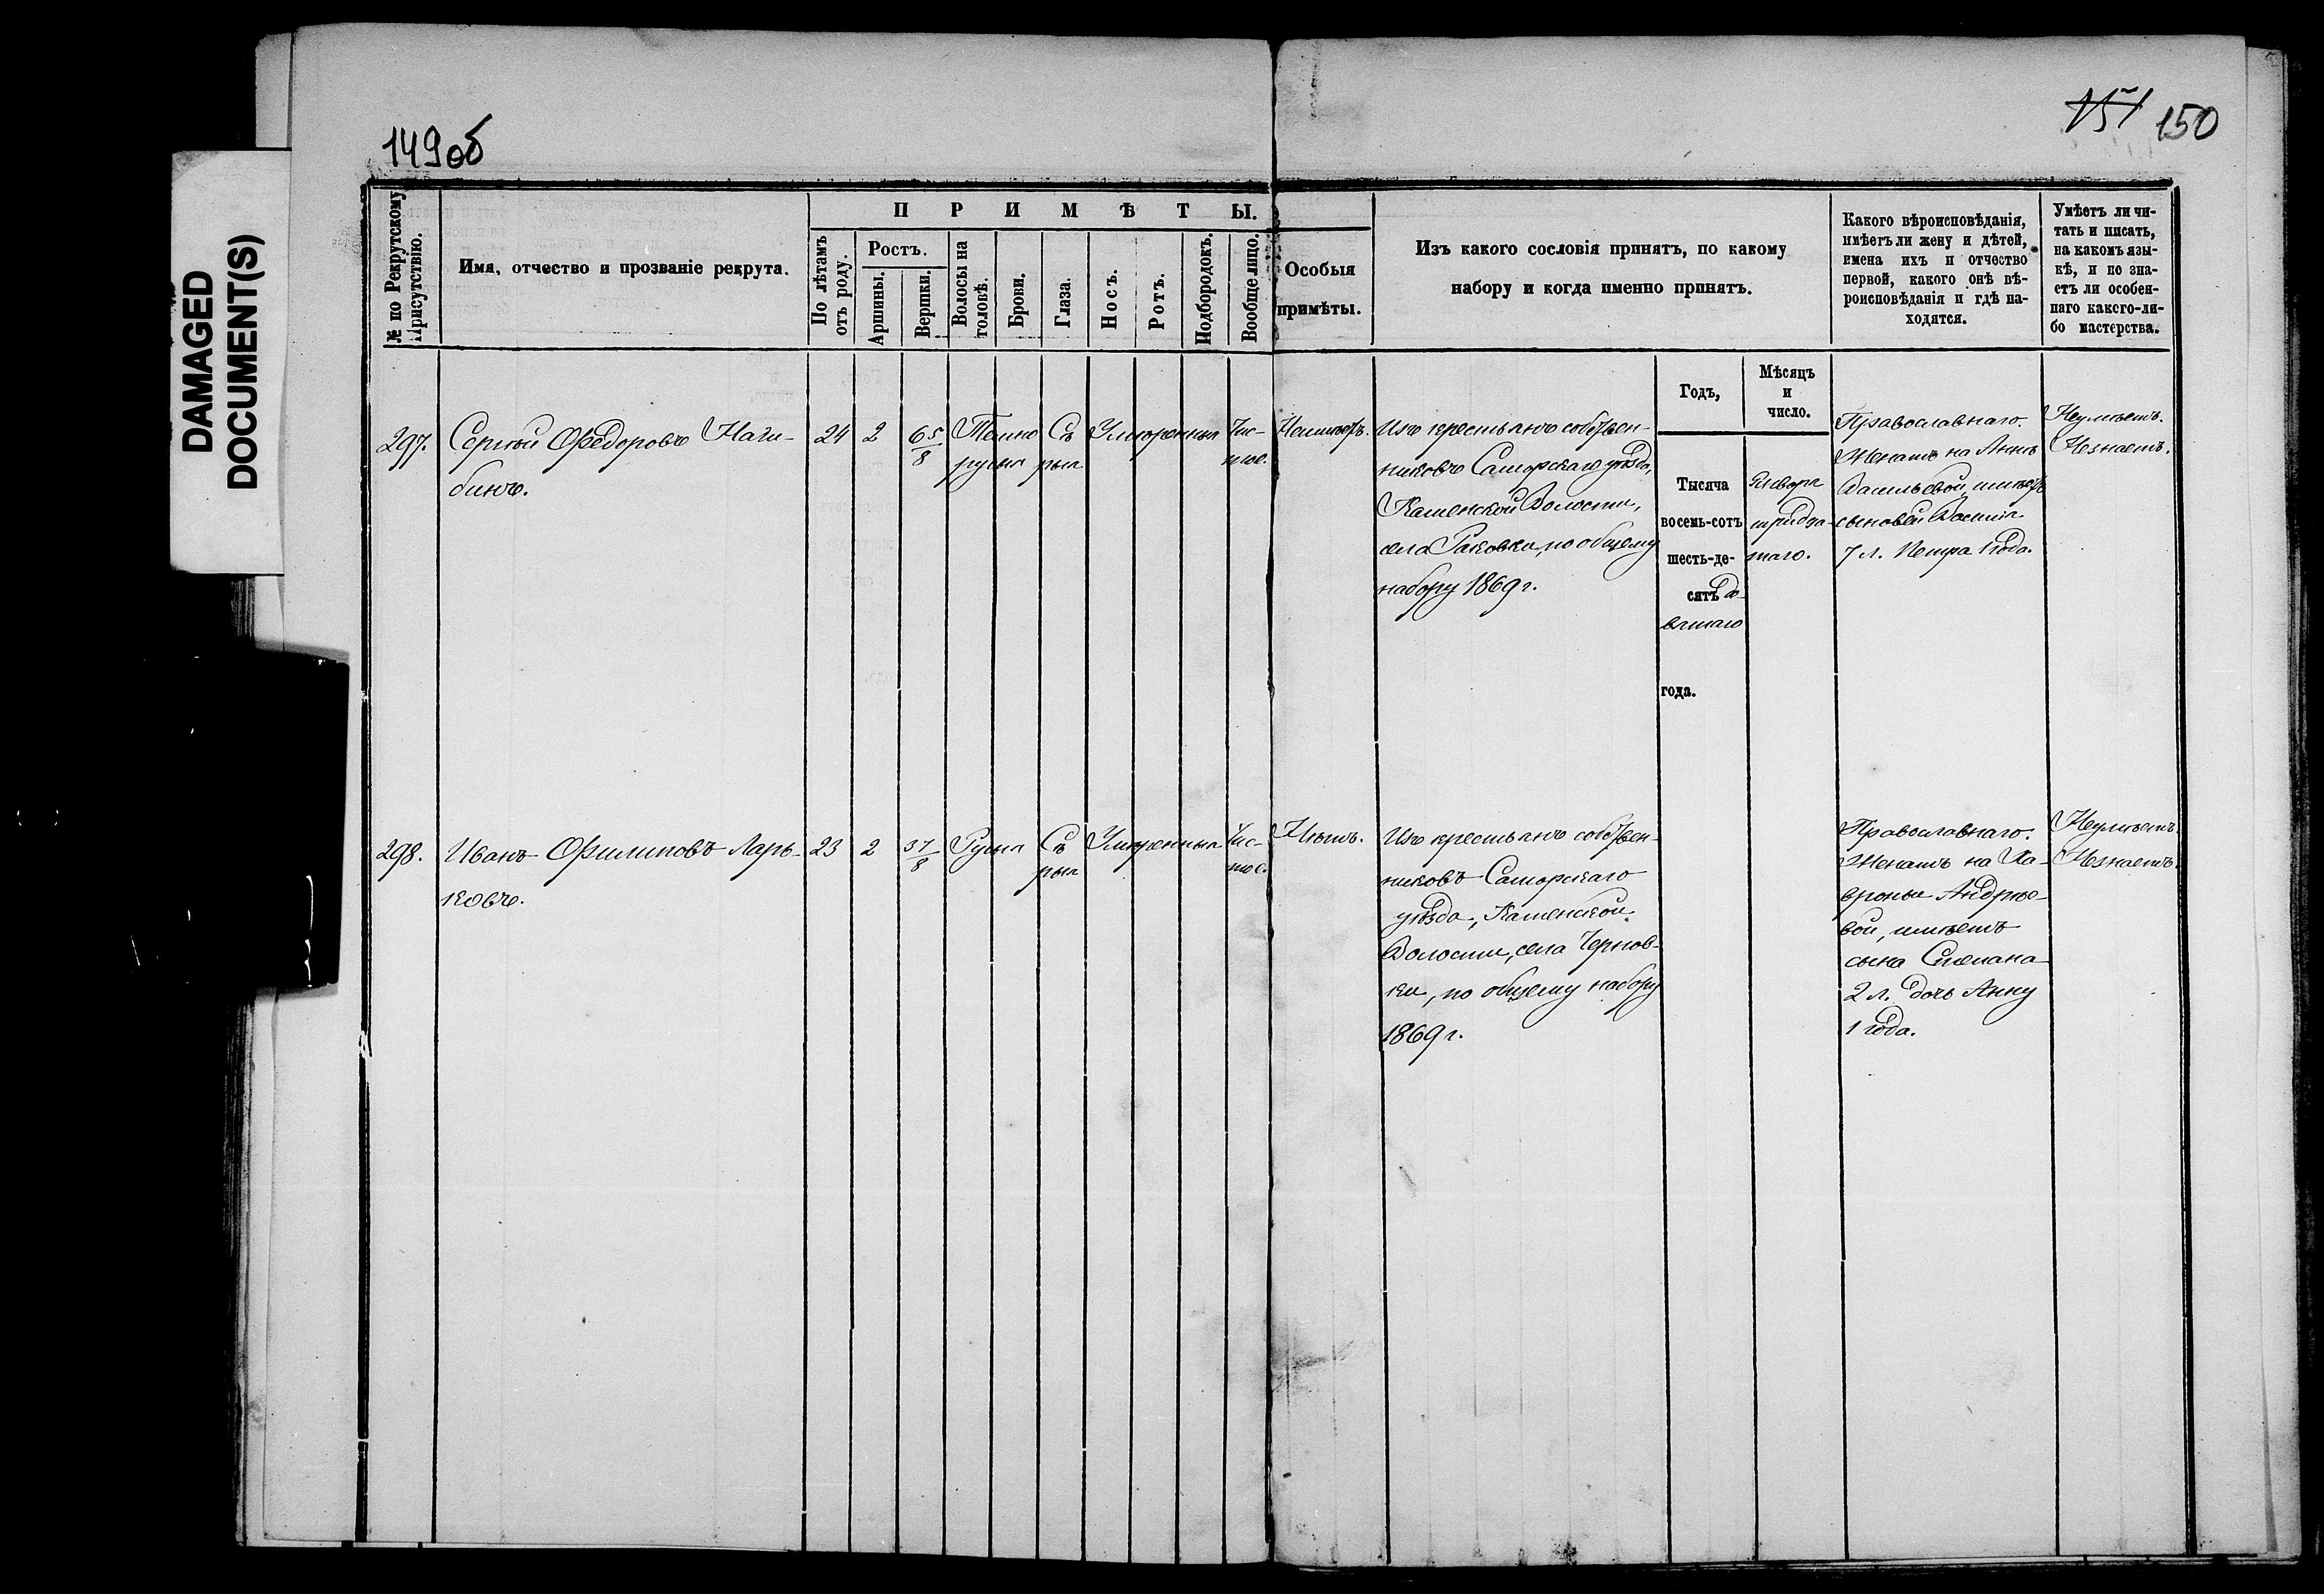 DAMAGED
DOCUMENT(S)
149 об
151 150
№ по Рекрутскому Присутствію.
Имя, отчество и прозваніе рекрута.
ПРИМѢТЫ.
По лѣтамъ отъ роду.
Ростъ.
Аршины.
Вершки.
Волосы на головѣ.
Брови.
Глаза.
Носъ.
Ротъ.
Подбородокъ.
Вообще лицо.
Особыя
примѣты.
Изъ какого сословія принятъ, по какому
набору и когда именно принятъ.
Какого вѣроисповѣданія,
имѣетъ ли жену и дѣтей,
имена ихъ и отчество
первой, какого онѣ вѣ-
роисповѣданія и гдѣ на-
ходятся.
Умѣетъ ли чи-
тать и писать,
на какомъ язы-
кѣ, и не зна-
етъ ли особен-
наго какого-ли-
бо мастерства.
Годъ,
Мѣсяцъ
и
число.
297.
Сергѣй Ѳедоровъ Наги-
бинъ.
24
2
6 5/8
Темно
русыя
Сѣ
рыя
Умѣренныя
Чис-
тое.
Изъ крестьянъ собствен-
никовъ Самарскаго уѣзда,
Каменской Волости,
села Раковки, по общему
набору 1869 г.
Тысяча
восемь-сотъ
шесть-де-
сятъ де-
вятаго
года.
Января
тридца-
таго.
Православнаго.
Женатъ на Аннѣ
Васильевой, имѣетъ
сыновей Василія
7 л. Петра 1 года.
Неумѣетъ.
Незнаетъ.
298.
Иванъ Филиповъ Ларь-
ковъ.
23
2
3 7/8
Русыя
Сѣ
рыя
Умѣренныя
Чис-
тое.
Нѣтъ.
Изъ крестьянъ собствен-
никовъ Самарскаго
уѣзда, Каменской
Волости, села Чернов-
ки, по общему набору
1869 г.
Православнаго.
Женатъ на Ха-
вроньи Андрѣе-
вой, имѣетъ
сына Степана
2 л. дочь Анну
1 года.
Неумѣетъ.
Незнаетъ.